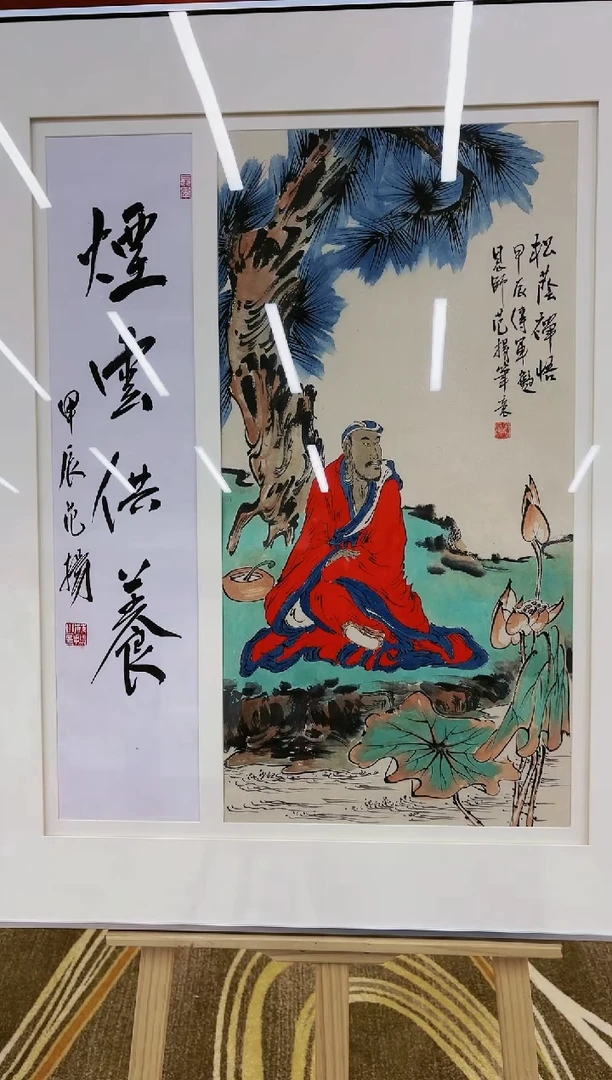 煙雲供養
甲辰范揚
松蔭禪悟
甲辰得軍
恩師范揚筆意